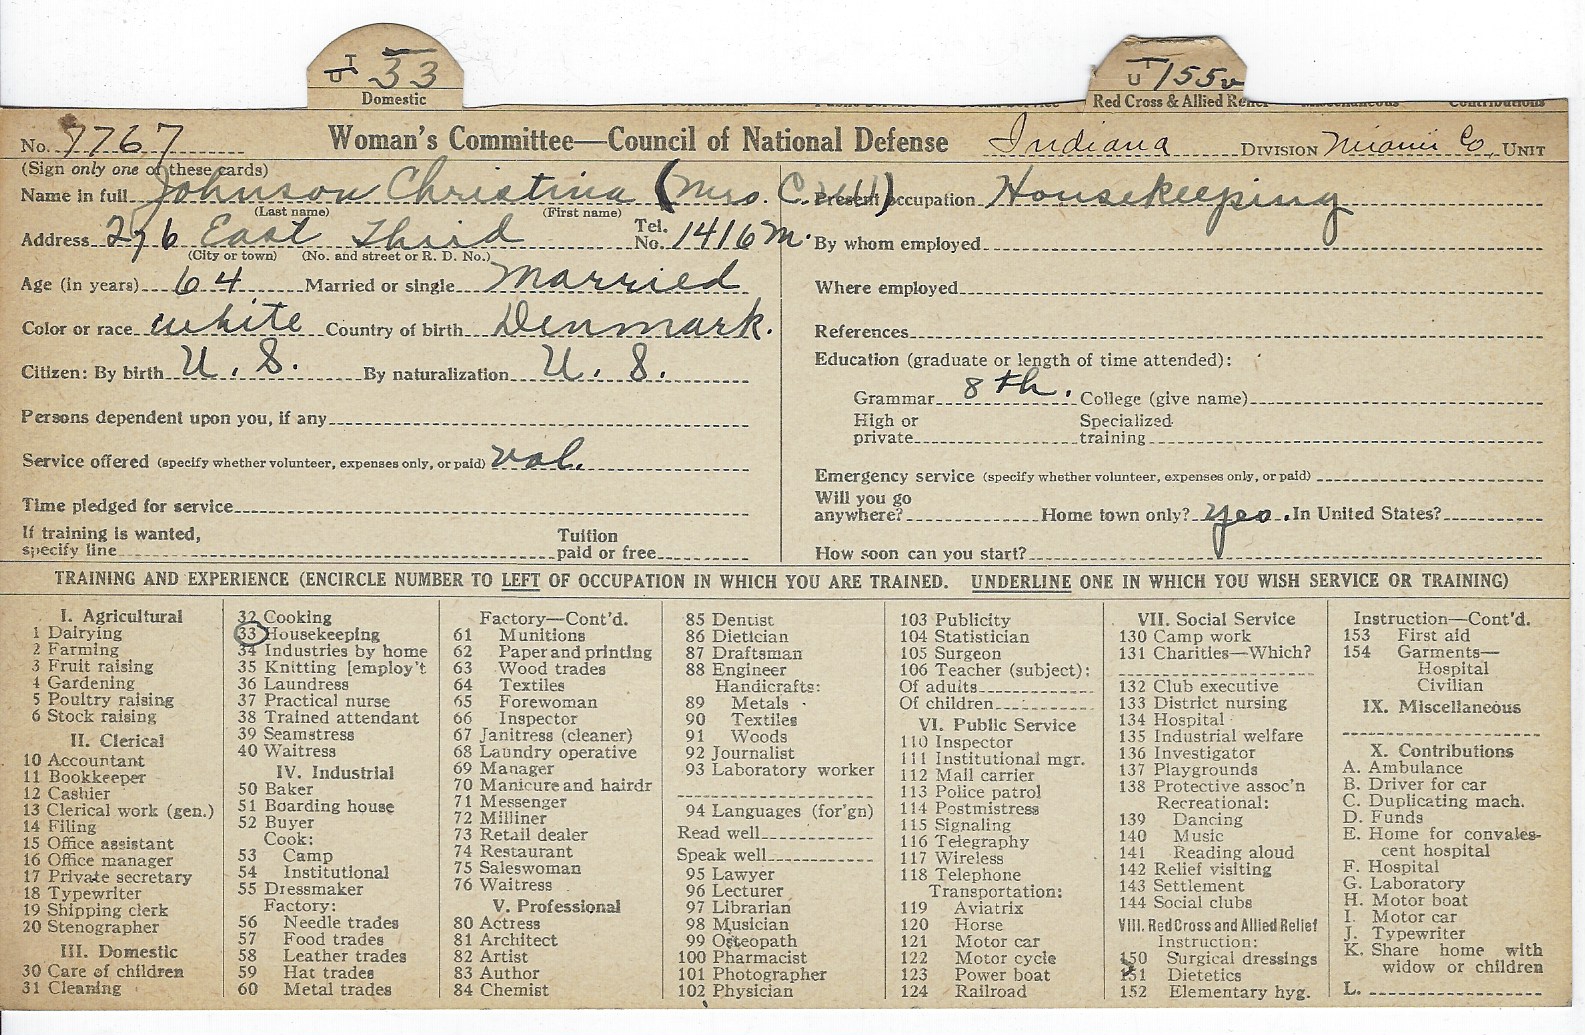 UT 33
Domestic
UT 155v
Red Cross & Allied Relief
No. 7767 Woman's Committee—Council of National Defense Indiana DIVISION Miami Co. UNIT
(Sign only one of these cards)
Name in full Johnson Christina (Mrs. C.
(Last name) (First name)
Address 276 East Third Tel. No. 1416 M.
(City or town) (No. and street or R. D. No.)
Age (in years) 64 Married or single Married
Color or race white Country of birth Denmark.
Citizen: By birth U. S. By naturalization U. S.
Persons dependent upon you, if any
Service offered (specify whether volunteer, expenses only, or paid) vol.
Time pledged for service
If training is wanted, specify line Tuition paid or free
Present occupation Housekeeping
By whom employed
Where employed
References
Education (graduate or length of time attended):
Grammar 8th. College (give name)
High or private Specialized training
Emergency service (specify whether volunteer, expenses only, or paid)
Will you go anywhere? Home town only? yes. In United States?
How soon can you start?
TRAINING AND EXPERIENCE (ENCIRCLE NUMBER TO LEFT OF OCCUPATION IN WHICH YOU ARE TRAINED. UNDERLINE ONE IN WHICH YOU WISH SERVICE OR TRAINING)
I. Agricultural
1 Dairying
2 Farming
3 Fruit raising
4 Gardening
5 Poultry raising
6 Stock raising
II. Clerical
10 Accountant
11 Bookkeeper
12 Cashier
13 Clerical work (gen.)
14 Filing
15 Office assistant
16 Office manager
17 Private secretary
18 Typewriter
19 Shipping clerk
20 Stenographer
III. Domestic
30 Care of children
31 Cleaning
32 Cooking
33 Housekeeping
34 Industries by home
35 Knitting [employ't
36 Laundress
37 Practical nurse
38 Trained attendant
39 Seamstress
40 Waitress
IV. Industrial
50 Baker
51 Boarding house
52 Buyer
Cook:
53 Camp
54 Institutional
55 Dressmaker
Factory:
56 Needle trades
57 Food trades
58 Leather trades
59 Hat trades
60 Metal trades
Factory—Cont'd.
61 Munitions
62 Paper and printing
63 Wood trades
64 Textiles
65 Forewoman
66 Inspector
67 Janitress (cleaner)
68 Laundry operative
69 Manager
70 Manicure and hairdr
71 Messenger
72 Milliner
73 Retail dealer
74 Restaurant
75 Saleswoman
76 Waitress
V. Professional
80 Actress
81 Architect
82 Artist
83 Author
84 Chemist
85 Dentist
86 Dietician
87 Draftsman
88 Engineer
Handicrafts:
89 Metals
90 Textiles
91 Woods
92 Journalist
93 Laboratory worker
94 Languages (for'gn)
Read well
Speak well
95 Lawyer
96 Lecturer
97 Librarian
98 Musician
99 Osteopath
100 Pharmacist
101 Photographer
102 Physician
103 Publicity
104 Statistician
105 Surgeon
106 Teacher (subject):
Of adults
Of children
VI. Public Service
110 Inspector
111 Institutional mgr.
112 Mail carrier
113 Police patrol
114 Postmistress
115 Signaling
116 Telegraphy
117 Wireless
118 Telephone
Transportation:
119 Aviatrix
120 Horse
121 Motor car
122 Motor cycle
123 Power boat
124 Railroad
VII. Social Service
130 Camp work
131 Charities—Which?
132 Club executive
133 District nursing
134 Hospital
135 Industrial welfare
136 Investigator
137 Playgrounds
138 Protective assoc'n
Recreational:
139 Dancing
140 Music
141 Reading aloud
142 Relief visiting
143 Settlement
144 Social clubs
VIII. Red Cross and Allied Relief
Instruction:
150 Surgical dressings
151 Dietetics
152 Elementary hyg.
Instruction—Cont'd.
153 First aid
154 Garments—
Hospital
Civilian
IX. Miscellaneous
X. Contributions
A. Ambulance
B. Driver for car
C. Duplicating mach.
D. Funds
E. Home for convales-
cent hospital
F. Hospital
G. Laboratory
H. Motor boat
I. Motor car
J. Typewriter
K. Share home with
widow or children
L.